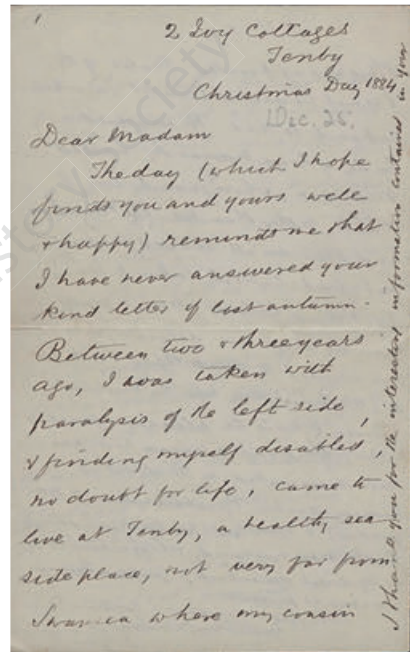 1
2 Ivy Cottages
Tenby
Christmas Day 1884
Dec. 25.
Dear Madam
The day (which I hope
finds you and yours well
& happy) reminds me that
I have never answered your
kind letter of last autumn.
Between two & three years
ago, I was taken with
paralysis of the left side,
& finding myself disabled,
no doubt for life, came to
live at Tenby, a healthy sea
side place, not very far from
Swansea where my cousin
I thank you for the interesting information contained in your